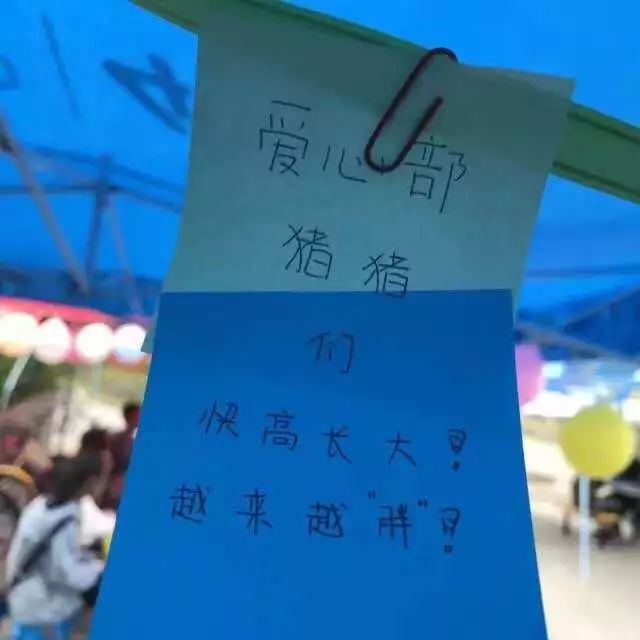 爱心部
猪猪
们
快高长大!
越来越"胖"!